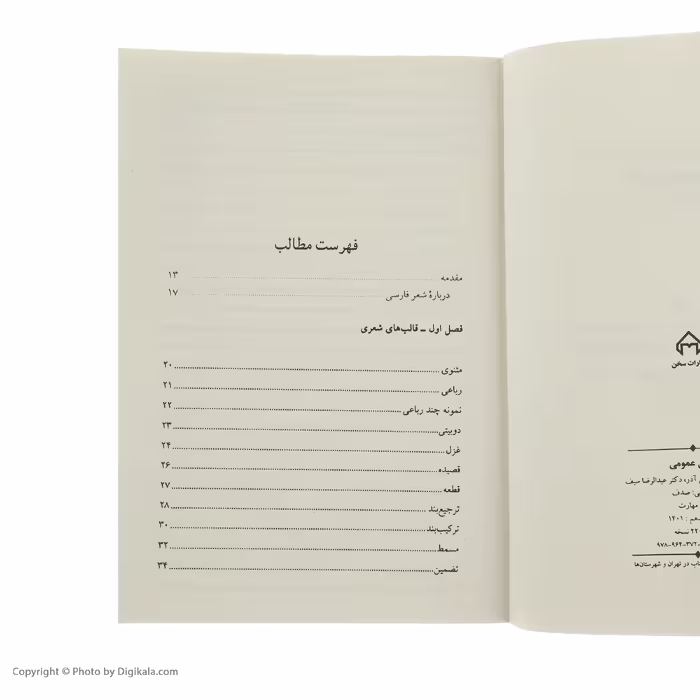 فهرست مطالب
مقدمه ۱۳
دربارهٔ شعر فارسی ۱۷
فصل اول ــ قالب‌های شعری
مثنوی ۲۰
رباعی ۲۱
نمونه چند رباعی ۲۲
دوبیتی ۲۳
غزل ۲۴
قصیده ۲۶
قطعه ۲۷
ترجیع‌بند ۲۸
ترکیب‌بند ۳۰
مسمط ۳۲
تضمین ۳۴
ارات سخن
عمومی
آذر، دکتر عبدالرضا سیف
صدف
مهارت
هم: ۱۴۰۱
۲۲ نسخه
۹۷۸-۹۶۴-۳۷۲-
تاب در تهران و شهرستان‌ها
Copyright © Photo by Digikala.com